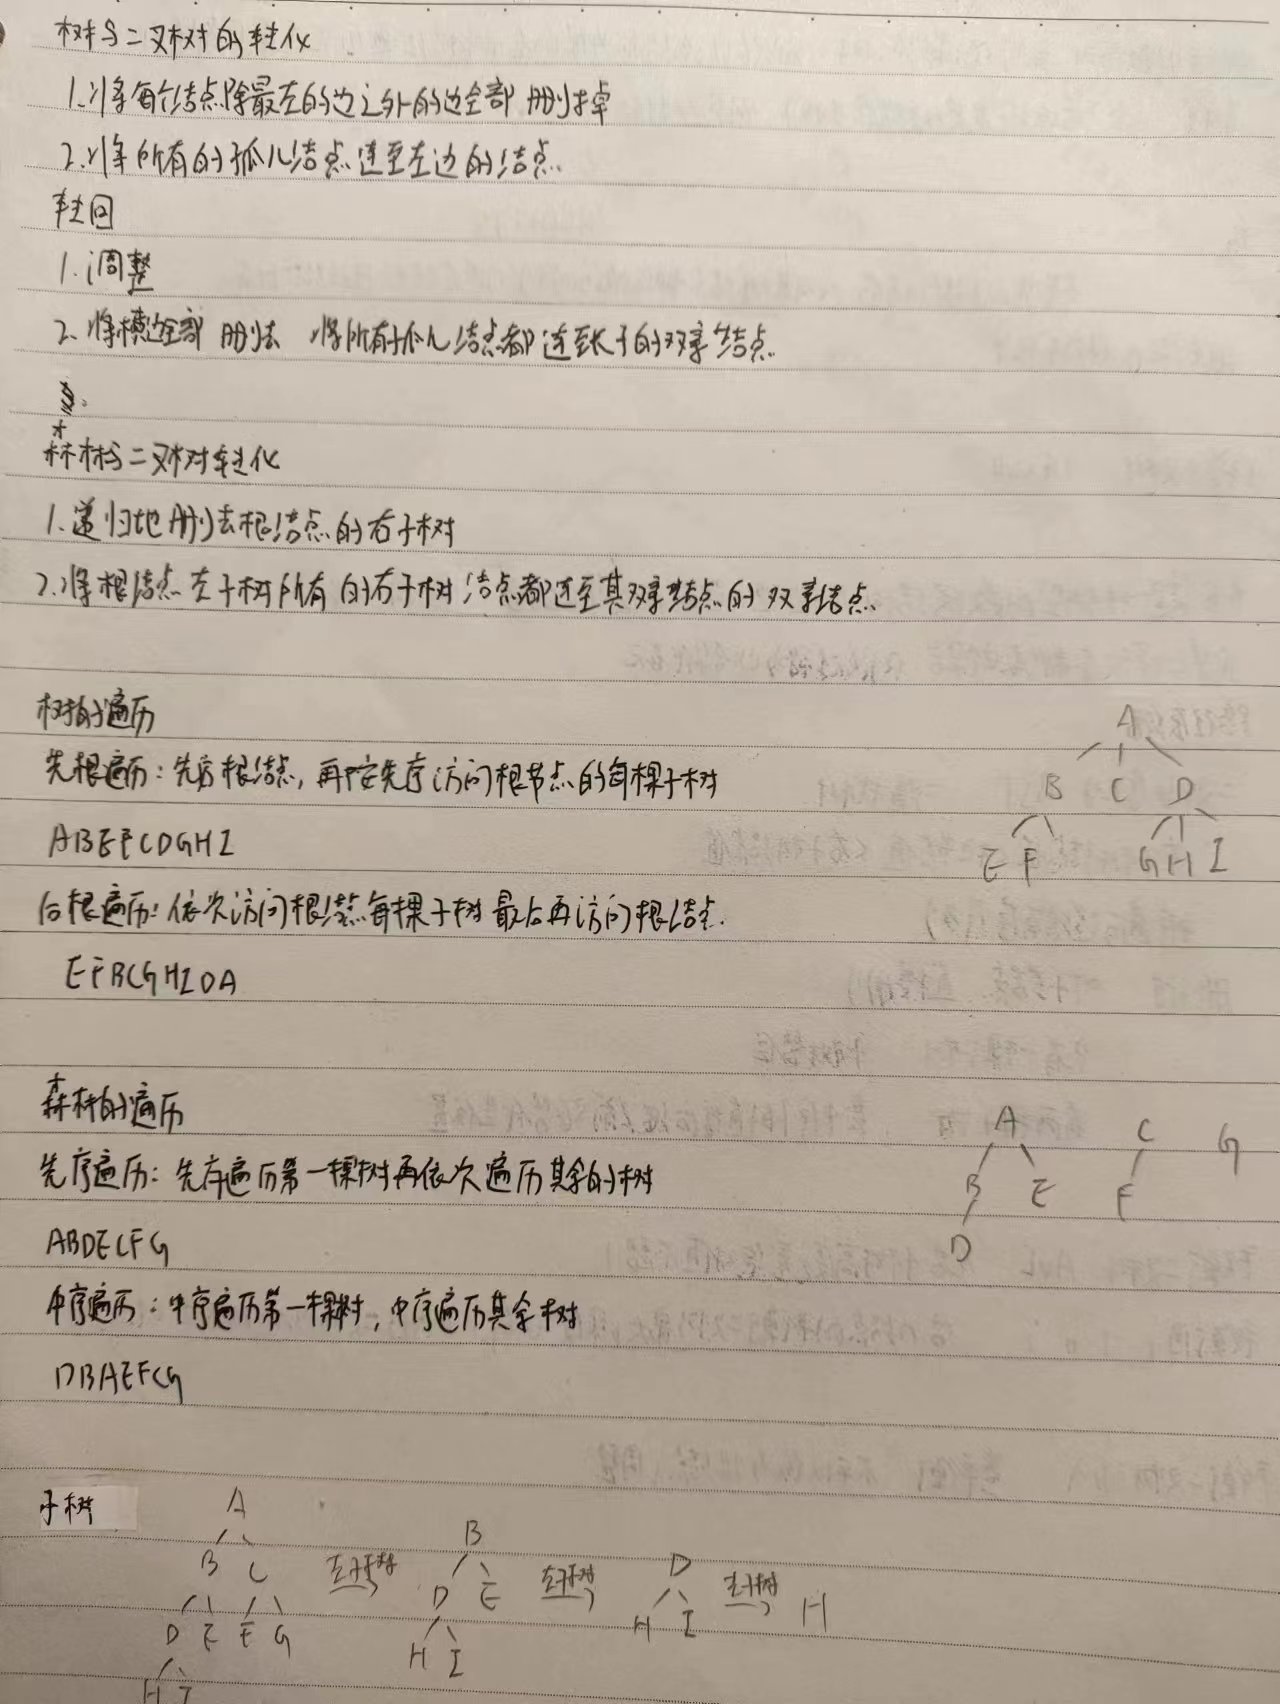 树与二叉树的转化
1.将每个结点除最左的边之外的边全部删掉
2.将所有的孤儿结点连至左边的结点.
转回
1.调整
2.将横边全部删去 将所有孤儿结点都连至长子的双亲结点.
森林与二叉树转化
1.递归地删去根结点的右子树
2.将根结点左子树所有的右子树结点都连至其双亲结点的双亲结点.
树的遍历
先根遍历:先访根结点,再按先序访问根节点的每棵子树
ABEFCDGHI
后根遍历:依次访问根结点每棵子树最后再访问根结点.
EFBCGHIDA
A
B C D
E F G H I
森林的遍历
先序遍历:先序遍历第一棵树再依次遍历其余的树
ABDECFG
中序遍历:中序遍历第一棵树,中序遍历其余树
DBAEFCG
A C G
B E F
D
子树
A
B C 左子树 B
D E 左子树 D
H I 左子树 H
D E F G
H I
H I